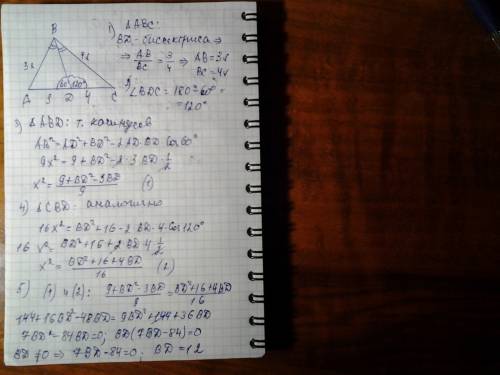 B
3x
4x
60°
120°
A 3 D 4 C
1) ΔABC:
BD - биссектриса ⇒
⇒ AB/BC = 3/4 ⇒ AB = 3x
BC = 4x
2) ∠BDC = 180° - 60° =
= 120°
3) ΔABD: т. косинусов
AB² = AD² + BD² - 2AD·BD Cos 60°
9x² = 9 + BD² - 2·3BD·1/2
x² = (9 + BD² - 3BD)/9 (1)
4) ΔCBD: аналогично
16x² = BD² + 16 - 2 BD·4·Cos 120°
16x² = BD² + 16 + 2 BD·4·1/2
x² = (BD² + 16 + 4BD)/16 (2)
5) (1) и (2): (9 + BD² - 3BD)/9 = (BD² + 16 + 4BD)/16
144 + 16BD² - 48BD = 9BD² + 144 + 36BD
7BD² - 84BD = 0; BD(7BD - 84) = 0
BD ≠ 0 ⇒ 7BD - 84 = 0; BD = 12